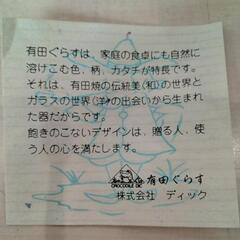 有田ぐらすは、家庭の食卓にも自然に
溶けこむ色、柄、カタチが特長です。
それは、有田焼の伝統美(和)の世界と
ガラスの世界(洋)の出会いから生まれ
た器だからです。
飽きのこないデザインは、贈る人、使
う人の心を満たします。
有田ぐらす
CROCODILE DIC
株式会社 ディック